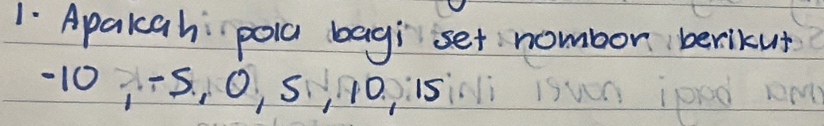 1. Apakah pola bagi set nombor berikut
-10, -5, 0, 5, 10, 15